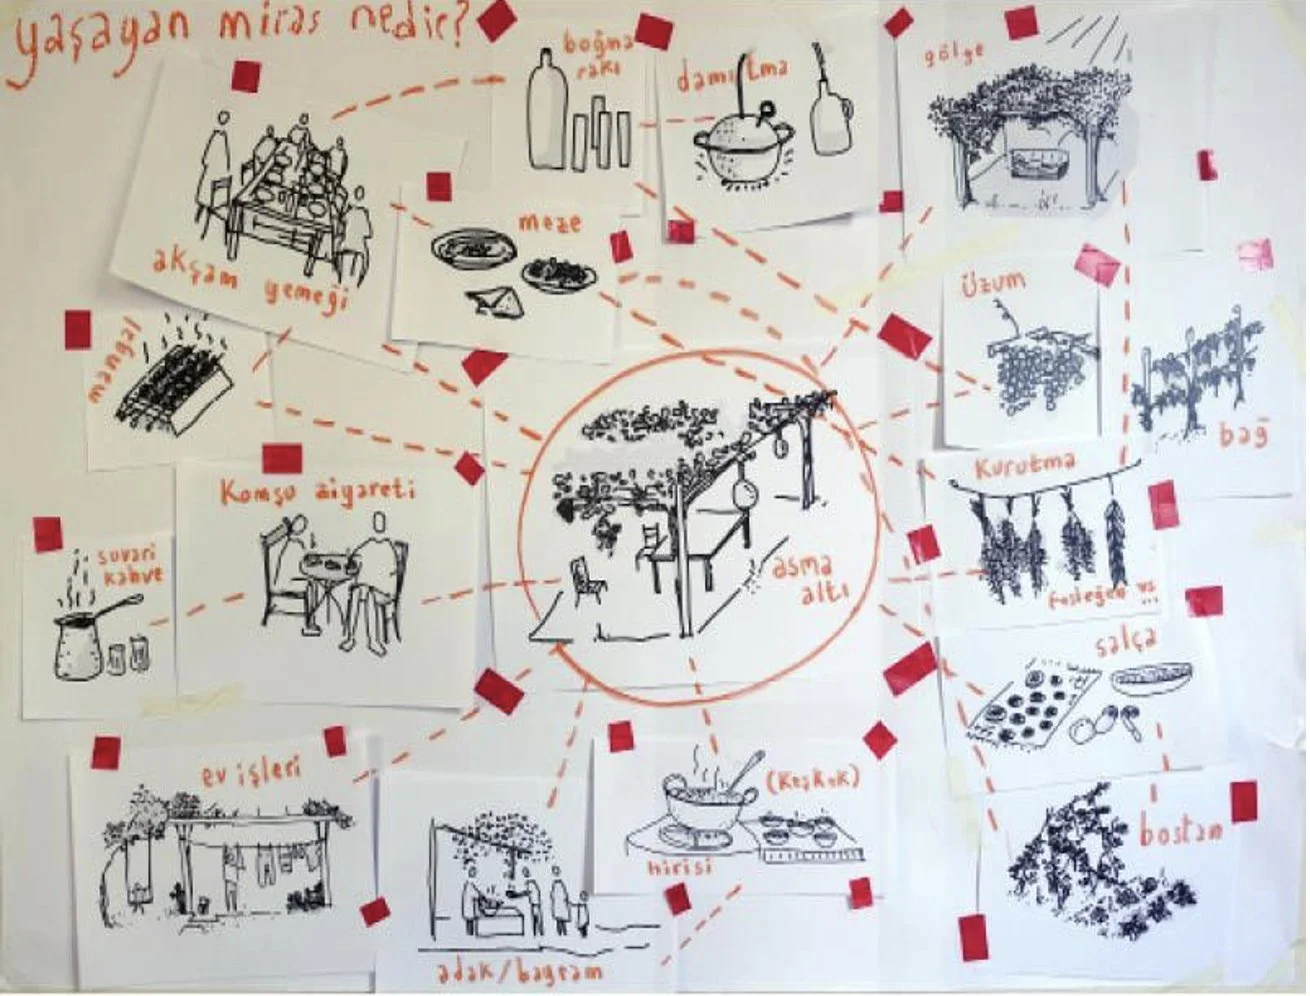 yaşayan miras nedir?
boğma
rakı
damıtma
gölge
akşam yemeği
meze
üzüm
bağ
mangal
Komşu ziyareti
Kurutma
fesleğen vs
...
suvari
kahve
asma
altı
salça
ev işleri
(Keşkek)
hirisi
bostan
adak/bayram